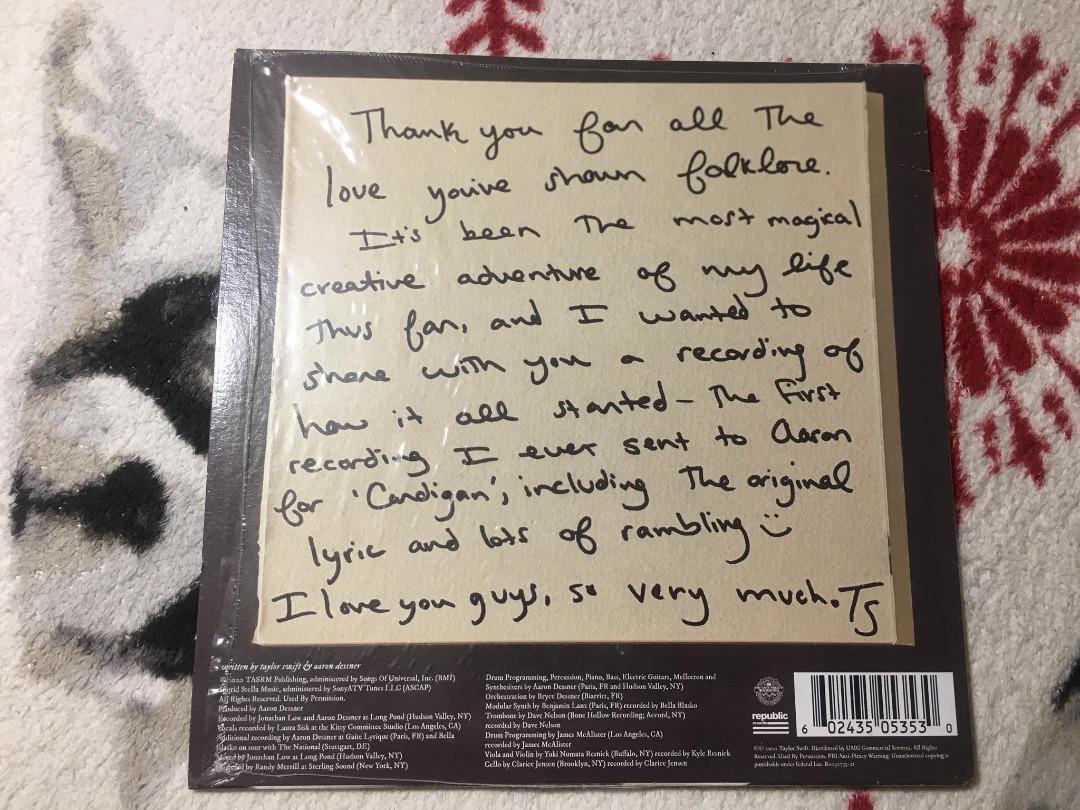 Thank you for all the
love you've shown folklore.
It's been the most magical
creative adventure of my life
thus far, and I wanted to
share with you a recording of
how it all started - the first
recording I ever sent to Aaron
for 'Cardigan', including the original
lyric and lots of rambling :)
I love you guys, so very much. TS
written by taylor swift & aaron dessner
©2020 TASRM Publishing, administered by Songs Of Universal, Inc. (BMI)
Ingrid Stella Music, administered by Sony/ATV Tunes LLC (ASCAP)
All Rights Reserved. Used By Permission.
Produced by Aaron Dessner
Recorded by Jonathan Low and Aaron Dessner at Long Pond (Hudson Valley, NY)
Vocals recorded by Laura Sisk at the Kitty Committee Studio (Los Angeles, CA)
Additional recording by Aaron Dessner at Gaite Lyrique (Paris, FR) and Bella
Blasko on tour with The National (Stuttgart, DE)
Mixed by Jonathan Low at Long Pond (Hudson Valley, NY)
by Randy Merrill at Sterling Sound (New York, NY)
Drum Programming, Percussion, Piano, Bass, Electric Guitars, Mellotron and
Synthesizers by Aaron Dessner (Paris, FR and Hudson Valley, NY)
Orchestration by Bryce Dessner (Biarritz, FR)
Modular Synth by Benjamin Lanz (Paris, FR) recorded by Bella Blasko
Trombone by Dave Nelson (Bone Hollow Recording; Accord, NY)
recorded by Dave Nelson
Drum Programming by James McAlister (Los Angeles, CA)
recorded by James McAlister
Viola and Violin by Yuki Numata Resnick (Buffalo, NY) recorded by Kyle Resnick
Cello by Clarice Jensen (Brooklyn, NY) recorded by Clarice Jensen
republic
6 02435 05353 0
℗© 2020 Taylor Swift. Distributed by UMG Commercial Services. All Rights
Reserved. Used By Permission. FBI Anti-Piracy Warning: Unauthorized copying is
punishable under federal law.